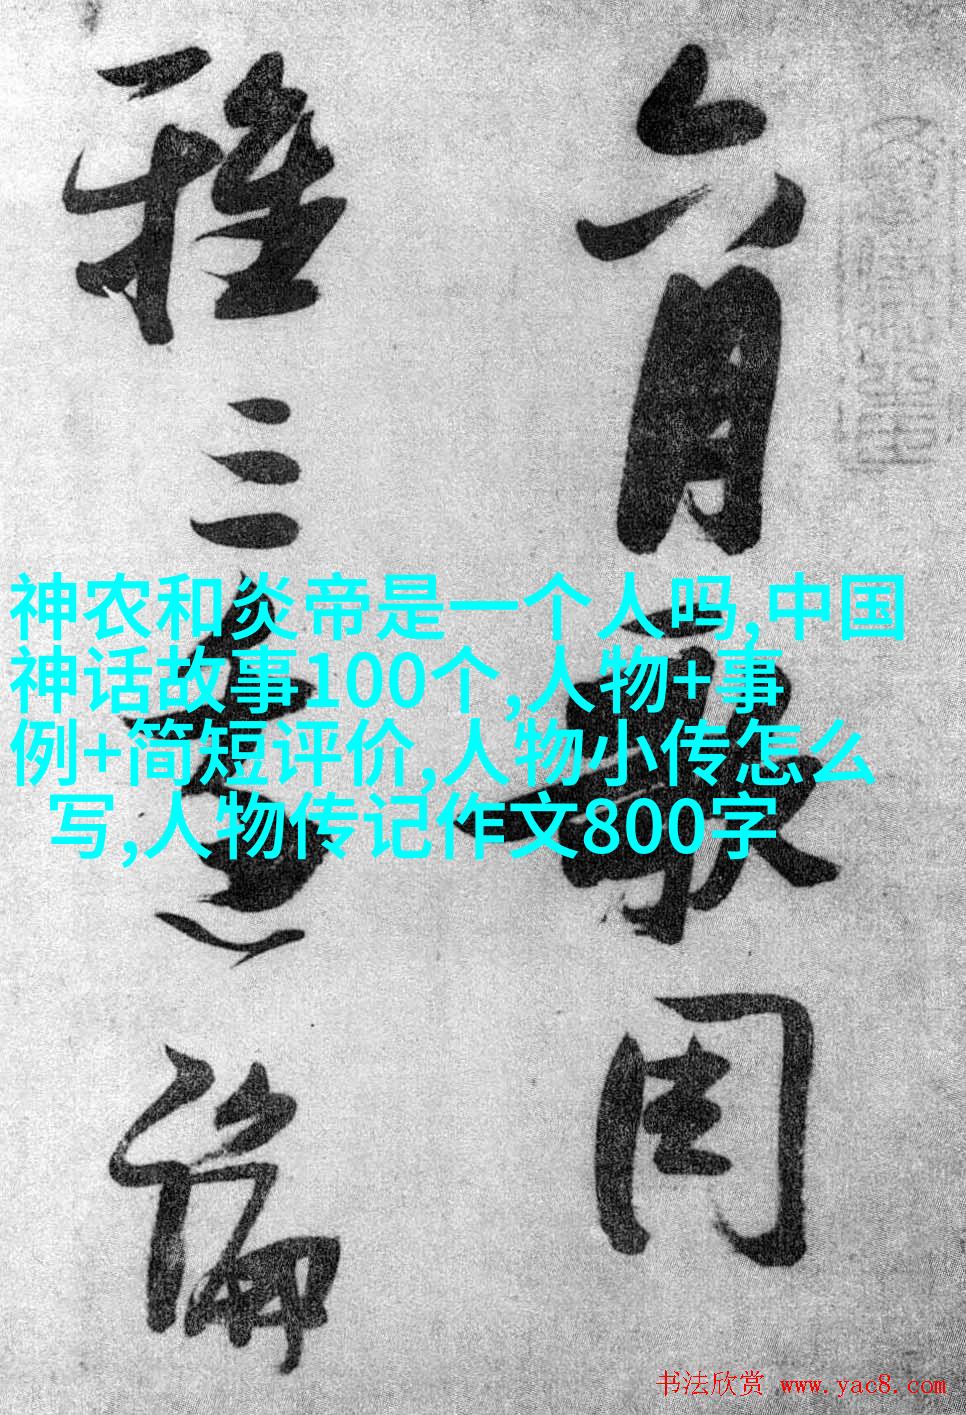 六月歌周
雅三 論
神农和炎帝是一个人吗,中国
神话故事100个,人物+事
例+简短评价,人物小传怎么
写,人物传记作文800字
书法欣赏 www.yac8.com